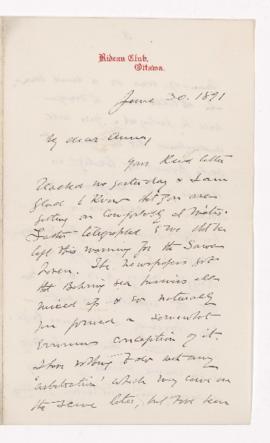 Rideau Club,
Ottawa.
June 30. 1891
My dear Anna,
Your kind letter
reached me yesterday & I am
glad to know that you are
getting on comfortably at
Father telegraphed & we
left this morning for the
The newspapers got
the Behring sea business all
mixed up & so naturally
you formed a somewhat
erroneous conception of it.
I have nothing to do with any
'arbitration' which may come on
the scene later, but have been